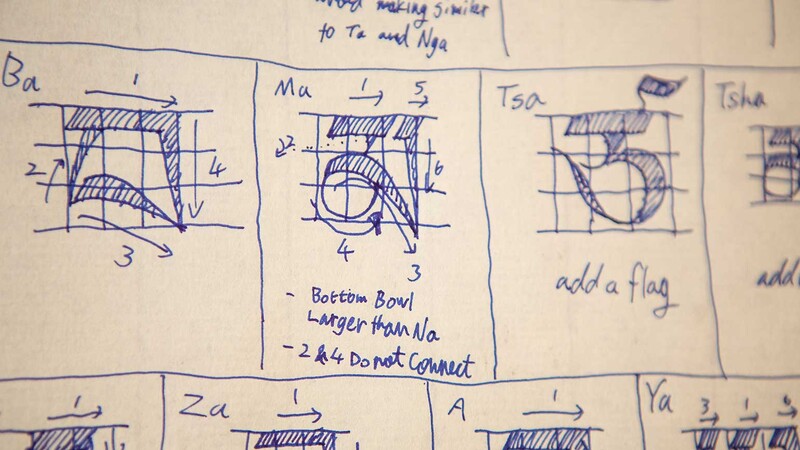 avoid making similer
to Ta and Nga
Ba
1
2
4
3
Ma
1
5
2
6
4
3
- Bottom Bowl
Larger than Na
- 2 & 4 Do not Connect
Tsa
add a flag
Tsha
1
Za
1
A
1
Ya
3
1